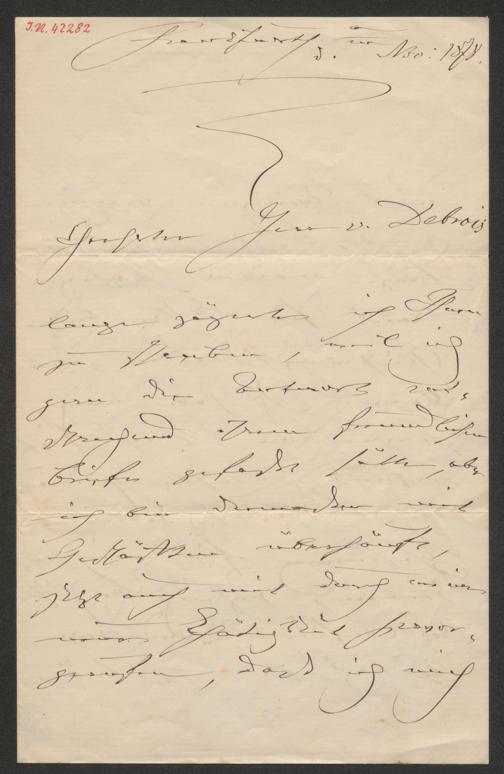 I.N. 42282
Frankfurt d. Nov: 1878.
Herr v. Debrois
lange zögerte ich Ihnen
zu schreiben, weil ich
gern die Antwort ent-
sprechend Ihrem freundlichen
Briefe gefaßt hätte, aber
ich bin dermaßen mit
Geschäften überhäuft,
jetzt auch mit durch meine
neue Thätigkeit hervor-
gerufen, daß ich mich